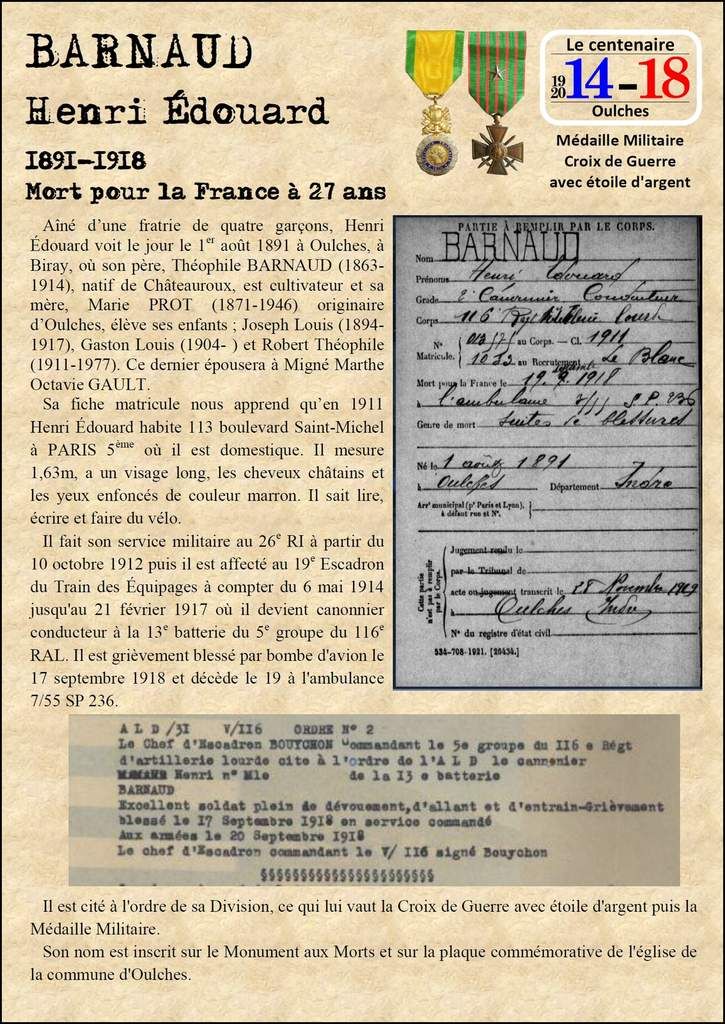 BARNAUD
Henri Édouard
1891-1918
Mort pour la France à 27 ans
Le centenaire
1914-2018
Oulches
Médaille Militaire
Croix de Guerre
avec étoile d'argent
Aîné d'une fratrie de quatre garçons, Henri
Édouard voit le jour le 1er août 1891 à Oulches, à
Biray, où son père, Théophile BARNAUD (1863-
1914), natif de Châteauroux, est cultivateur et sa
mère, Marie PROT (1871-1946) originaire
d'Oulches, élève ses enfants ; Joseph Louis (1894-
1917), Gaston Louis (1904- ) et Robert Théophile
(1911-1977). Ce dernier épousera à Migné Marthe
Octavie GAULT.
Sa fiche matricule nous apprend qu'en 1911
Henri Édouard habite 113 boulevard Saint-Michel
à PARIS 5ème où il est domestique. Il mesure
1,63m, a un visage long, les cheveux châtains et
les yeux enfoncés de couleur marron. Il sait lire,
écrire et faire du vélo.
Il fait son service militaire au 26e RI à partir du
10 octobre 1912 puis il est affecté au 19e Escadron
du Train des Équipages à compter du 6 mai 1914
jusqu'au 21 février 1917 où il devient canonnier
conducteur à la 13e batterie du 5e groupe du 116e
RAL. Il est grièvement blessé par bombe d'avion le
17 septembre 1918 et décède le 19 à l'ambulance
7/55 SP 236.
PARTIE À REMPLIR PAR LE CORPS.
Nom BARNAUD
Prénoms Henri Edouard
Grade 2e Canonnier Conducteur
Corps 116 Lourd
N° au Corps. — Cl. 1911
Matricule. 1032 au Recrutement Le Blanc
Mort pour la France le 19 1918
à l'ambulance S.P. 236
Genre de mort suites de blessures
Né le 1 août 1891
à Oulches Département Indre
Arrt municipal (pr Paris et Lyon),
à défaut rue et N°.
Cette partie
n'est pas à remplir
par le Corps.
Jugement rendu le
par le Tribunal de
acte ou jugement transcrit le 28 Novembre 1919
à Oulches Indre
N° du registre d'état civil
534-708-1921. [26434.]
A L D /31 V/116 ORDRE N° 2
Le Chef d'Escadron BOUYCHON commandant le 5e groupe du II6 e Régt
d'artillerie lourde cite à l'ordre de l'A L D le cannonier
Henri n° Mle de la 13 e batterie
BARNAUD
Excellent soldat plein de dévouement,d'allant et d'entrain-Grièvement
blessé le 17 Septembre 1918 en service commandé
Aux armées le 20 Septembre 1918
Le chef d'Escadron commandant le V/ II6 signé Bouychon
§§§§§§§§§§§§§§§§§§§§§§
Il est cité à l'ordre de sa Division, ce qui lui vaut la Croix de Guerre avec étoile d'argent puis la
Médaille Militaire.
Son nom est inscrit sur le Monument aux Morts et sur la plaque commémorative de l'église de
la commune d'Oulches.